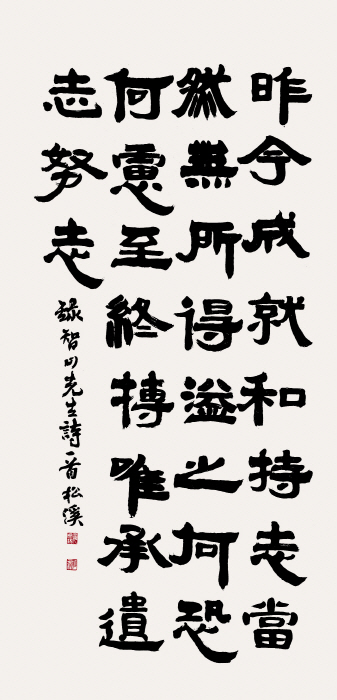 昨今成就和持志當
然無所得溢之何恐
何慮至終摶唯承遺
志努志
錄智山先生詩一首松溪